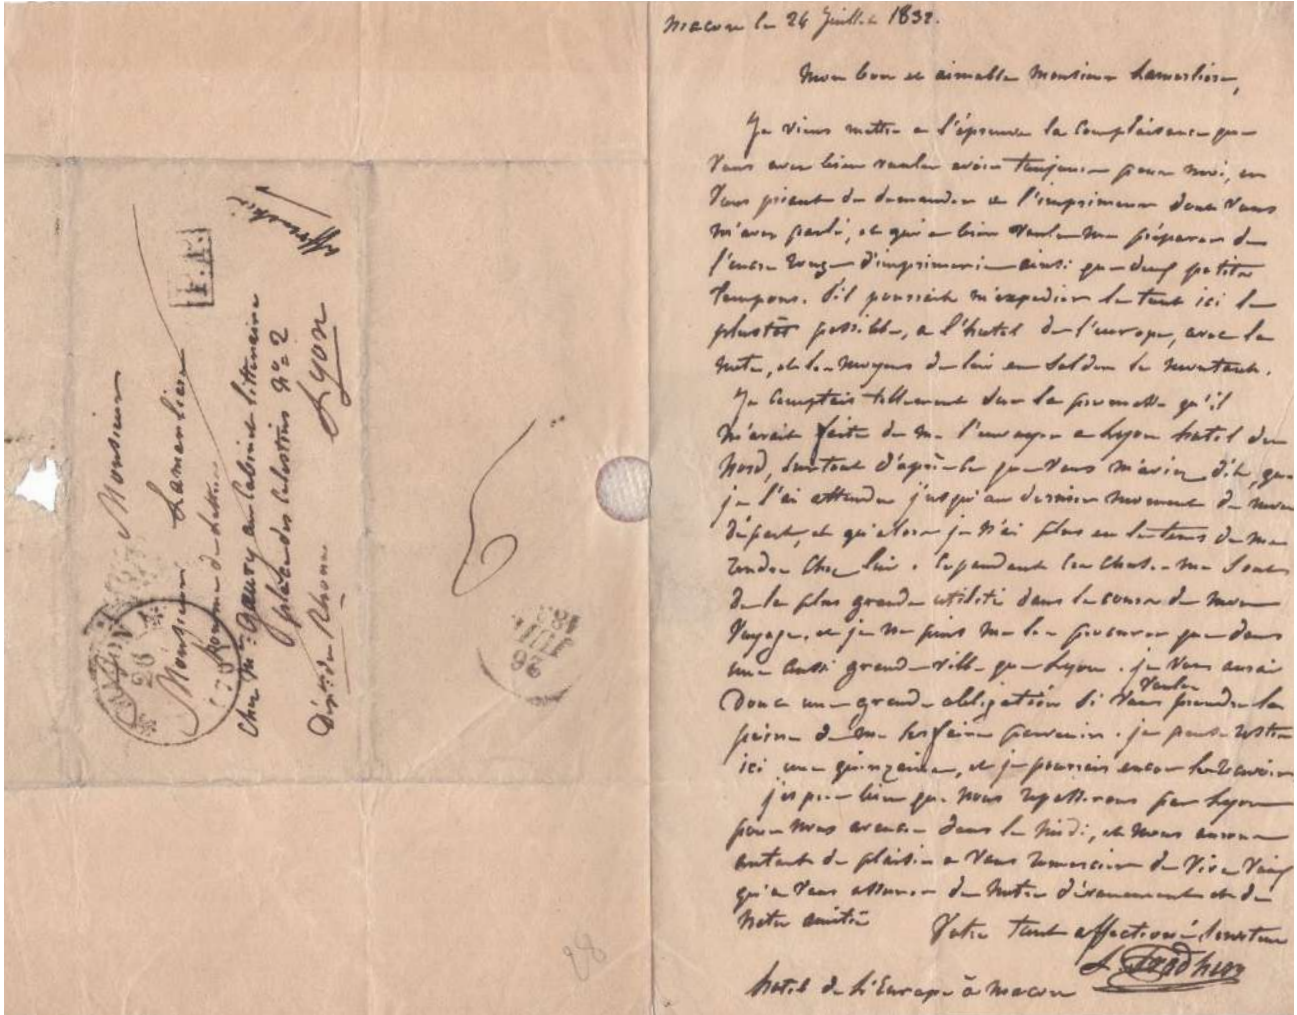 Monsieur
Monsieur Lamerliere
homme de lettres
chez Mr: Gaury au Cabinet littéraire
place des Celestins N°= 2
Lyon
Dépt. du Rhône
affranchi
P.P.
26
26
JUIL
6
28
Macon le 24 Juillet 1832.
Mon bon et aimable Monsieur Lamerliere,
Je viens mettre a l'épreuve la complaisance que
Vous avez bien voulu avoir toujours pour moi, en
Vous priant de demander a l'imprimeur dont Vous
m'avez parlé, et qui a bien voulu me préparer de
l'encre rouge d'imprimerie ainsi que deux petits
tampons. s'il pourrait m'expedier le tout ici le
plustôt possible, a l'hotel de l'europe, avec la
note, et les moyens de lui en solder le montant.
Je comptais tellement sur la promesse qu'il
m'avait faite de me l'envoyer a Lyon hotel du
Nord, surtout d'après ce que Vous m'aviez dit, que
je l'ai attendu jusqu'au dernier moment de mon
départ, et qu'alors je n'ai plus eu le tems de me
rendre chez lui. Cependant ces choses me sont
de la plus grande utilité dans le cours de mon
Voyage, et je ne puis me les procurer que dans
une aussi grande ville que Lyon. je Vous aurai
Donc une grande obligation si Vous voulez prendre la
peine de me les faire parvenir. je pense rester
ici une quinzaine, et je pourrais encor les recevoir
j'espere bien que nous repasserons par Lyon
pour nous avancer dans le Midi, et nous aurons
autant de plaisir a Vous remercier de Vive Voix
qu'a Vous assurer de notre dévouement et de
notre amitié
Votre tout affectioné serviteur
hotel de l'Europe à Macon